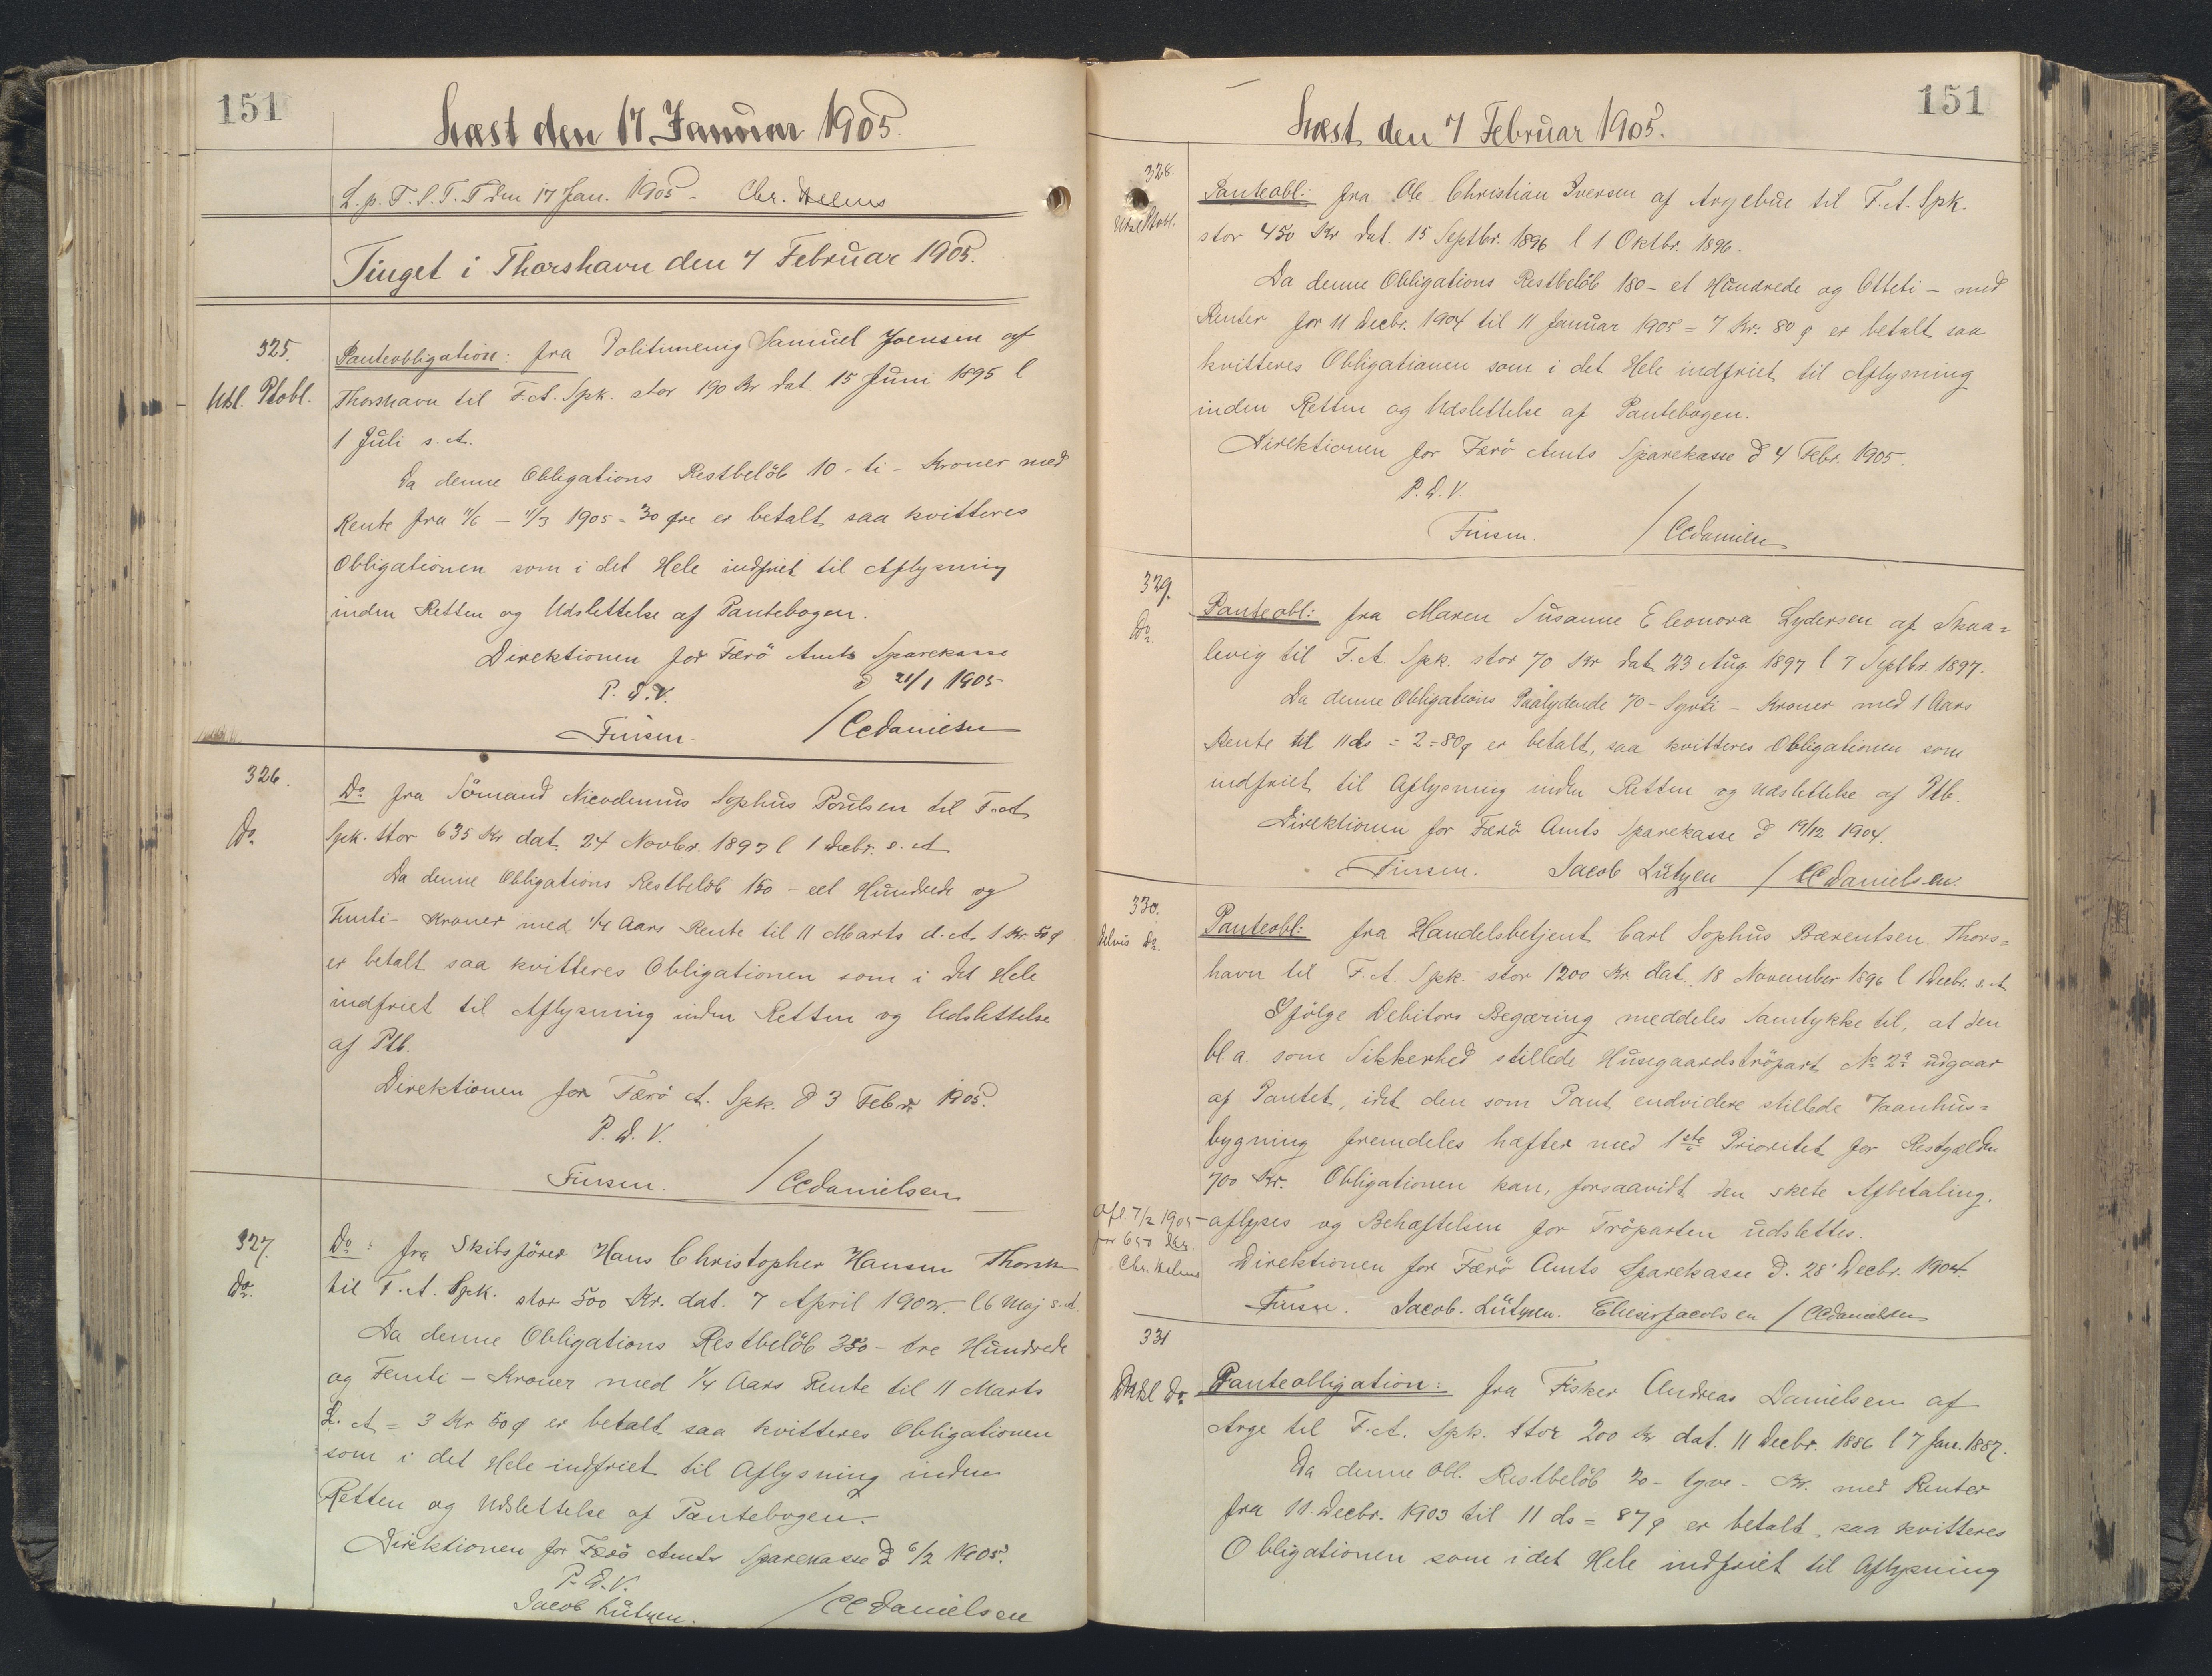 151
Læst den 17. Januar 1905.
L. p. F. S. T. T den 17 Jan. 1905 - Chr.
Tinget i Thorshavn den 7 Februar 1905.
325.
Udsl. Ptobl.
Panteobligation: fra Politimenig Samuel Joensen af
Thorshavn til F.A. Spk. stor 190 Kr dat 15 Juni 1895 l
1 Juli s. A.
Da denne Obligations Restbelöb 10 - ti - Kroner med
Rente fra 11/6 - 11/3 1905 = 30 Øre er betalt saa kvitteres
Obligationen som i det Hele indfriet til Aflysning
inden Retten og Udslettelse af Pantebogen.
Direktionen for Færö Amts Sparekasse
d 21/1 1905
P. D. V.
Finsen. / CCDanielsen
326.
Do
Do fra Sömand Nicodemus Sophus Poulsen til F.A.
Spk. stor 635 Kr dat. 24 Novbr. 1893 l 1 Decbr. s. A
Da denne Obligations Restbelöb 150 - eet Hundrede og
Femti - Kroner med 1/4 Aars Rente til 11 Marts d. A. 1 Kr. 50 ø
er betalt saa kvitteres Obligationen som i det Hele
indfriet til Aflysning inden Retten og Udslettelse
af Ptb.
Direktionen for Færö A. Spk. d 3 Febr. 1905.
P. D. V.
Finsen. / CCDanielsen
327.
Do.
Do: fra Skibsförer Hans Christopher Hansen Thorsh
til F. A. Spk. stor 500 Kr. dat. 7 April 1902 - l 6 Maj s. A.
Da denne Obligations Restbelöb 350 - tre Hundrede
og Femti - Kroner med 1/4 Aars Rente til 11 Marts
d. A = 3 Kr 50 ø er betalt saa kvitteres Obligationen
som i det Hele indfriet til Aflysning inden
Retten og Udslettelse af Pantebogen.
Direktionen for Færö Amts Sparekasse d 6/2 1905.
P. D. V.
Jacob Lützen. / CCDanielsen
151
Læst den 7 Februar 1905.
328.
Udsl Ptobl.
Panteobl: fra Ole Christian Iversen af Argebue til F. A. Spk.
stor 450 Kr dat. 15 Septbr. 1896 l 1 Oktbr. 1896.
Da denne Obligations Restbelöb 180 - et Hundrede og Otteti - med
Renter for 11 Decbr. 1904 til 11 Januar 1905 = 7 Kr. 80 ø er betalt saa
kvitteres Obligationen som i det Hele indfriet til Aflysning
inden Retten og Udslettelse af Pantebogen.
Direktionen for Færö Amts Sparekasse d 4 Febr. 1905.
P. D. V.
Finsen. / CCDanielsen
329.
Do.
Panteobl: fra Maren Susanne Eleonora Lydersen af Skaa=
levig til F. A. Spk. stor 70 Kr dat 23 Aug 1897 l 7 Septbr. 1897.
Da denne Obligations Paalydende 70 - Syvti - Kroner med 1 Aars
Rente til 11 ds = 2 = 80 ø er betalt, saa kvitteres Obligationen som
indfriet til Aflysning inden Retten og Udslettelse af Ptb.
Direktionen for Færö Amts Sparekasse d 19/12 1904.
Finsen. Jacob Lützen / CCDanielsen.
330.
Delvis Do.
Panteobl: fra Handelsbetjent Carl Sophus Bærentsen Thors=
havn til F. A. Spk. stor 1200 Kr. dat. 18 November 1896 l 1 Decbr. s. A
Ifölge Debitors Begæring meddeles Samtykke til, at den
bl. a. som Sikkerhed stillede Husegaardströpart No 2a udgaar
af Pantet, idet den som Pant endvidere stillede Vaanhus=
bygning fremdeles hæfter med 1ste Prioritet for Restgælden
700 Kr. Obligationen kan, forsaavidt den skete Afbetaling.
aflyses og Behæftelsen for Tröparten udslettes.
Afl. 7/2 1905
for 650 Kr.
Chr.
Direktionen for Færö Amts Sparekasse d. 28' Decbr. 1904
Finsen. Jacob. Lützen. Eliesar Jacobsen / CCDanielsen
331
Udsl Do
Panteobligation: fra Fisker Andreas Danielsen af
Arge til F. A. Spk. stor 200 Kr dat. 11 Decbr. 1886 l 7 Jan. 1887.
Da denne Obl. Restbelöb 20 - tyve - Kr. med Renter
fra 11. Decbr. 1903 til 11 ds = 87 ø er betalt, saa kvitteres
Obligationen som i det Hele indfriet til Aflysning